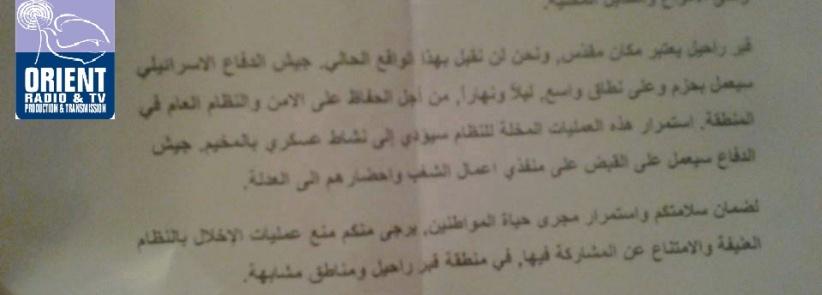 ORIENT
RADIO & TV
PRODUCTION & TRANSMISSION
قبر راحيل يعتبر مكان مقدس, ونحن لن نقبل بهذا الواقع الحالي. جيش الدفاع الاسرائيلي
سيعمل بحزم وعلى نطاق واسع, ليلاً ونهاراً, من أجل الحفاظ على الامن والنظام العام في
المنطقة. استمرار هذه العمليات المخلة للنظام سيؤدي إلى نشاط عسكري بالمخيم. جيش
الدفاع سيعمل على القبض على منفذي اعمال الشغب واحضارهم الى العدلة.
لضمان سلامتكم واستمرار مجرى حياة المواطنين, يرجى منكم منع عمليات الإخلال بالنظام
العنيفة والامتناع عن المشاركة فيها, في منطقة قبر راحيل ومناطق مشابهة.